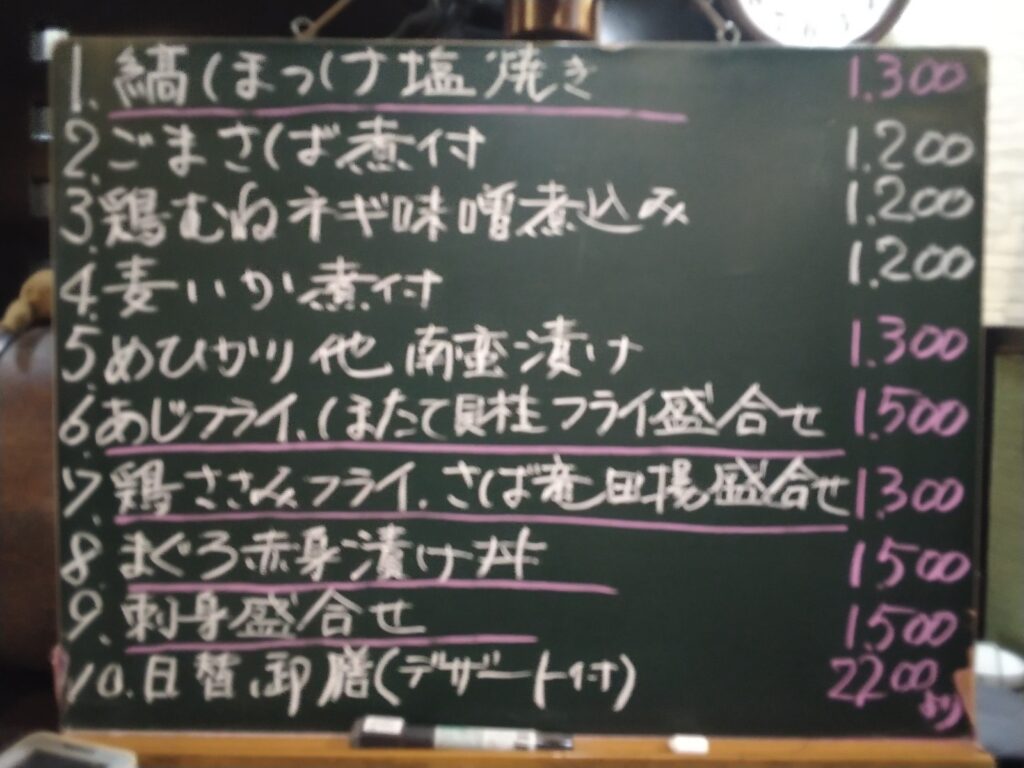 1. 縞ほっけ塩焼き 1.300
2. ごまさば煮付 1.200
3. 鶏むねネギ味噌煮込み 1.200
4. 麦いか煮付 1.200
5. めひかり他 南蛮漬け 1.300
6. あじフライ、ほたて貝柱フライ盛合せ 1.500
7. 鶏ささみフライ、さば竜田揚盛合せ 1.300
8. まぐろ赤身漬け丼 1.500
9. 刺身盛合せ 1.500
10. 日替御膳(デザート付) 2200
より